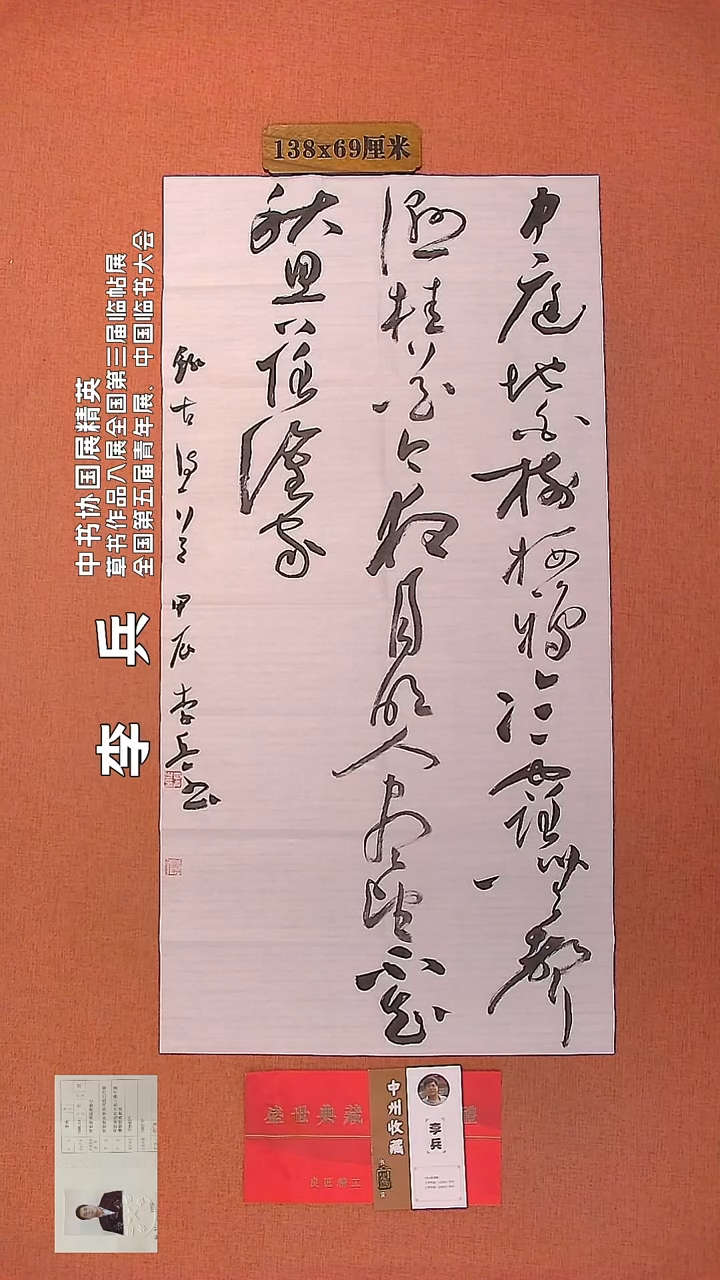 138x69厘米
中庭地白樹栖鴉冷露無聲
濕桂花今夜月明人盡望不知
秋思落誰家
錄古詩一首 甲辰 李兵書
中书协国展精英
草书作品入展全国第三届临帖展
全国第五届青年展、中国临书大会
李 兵
盛世典藏
良匠精工
中州收藏
李兵